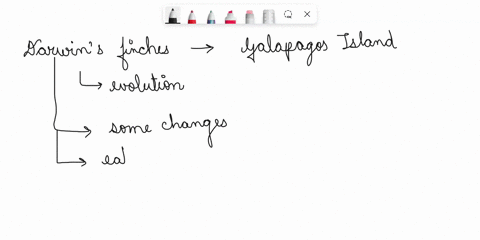 Darwin's finches → Galapagos Island
evolution
some changes
eat